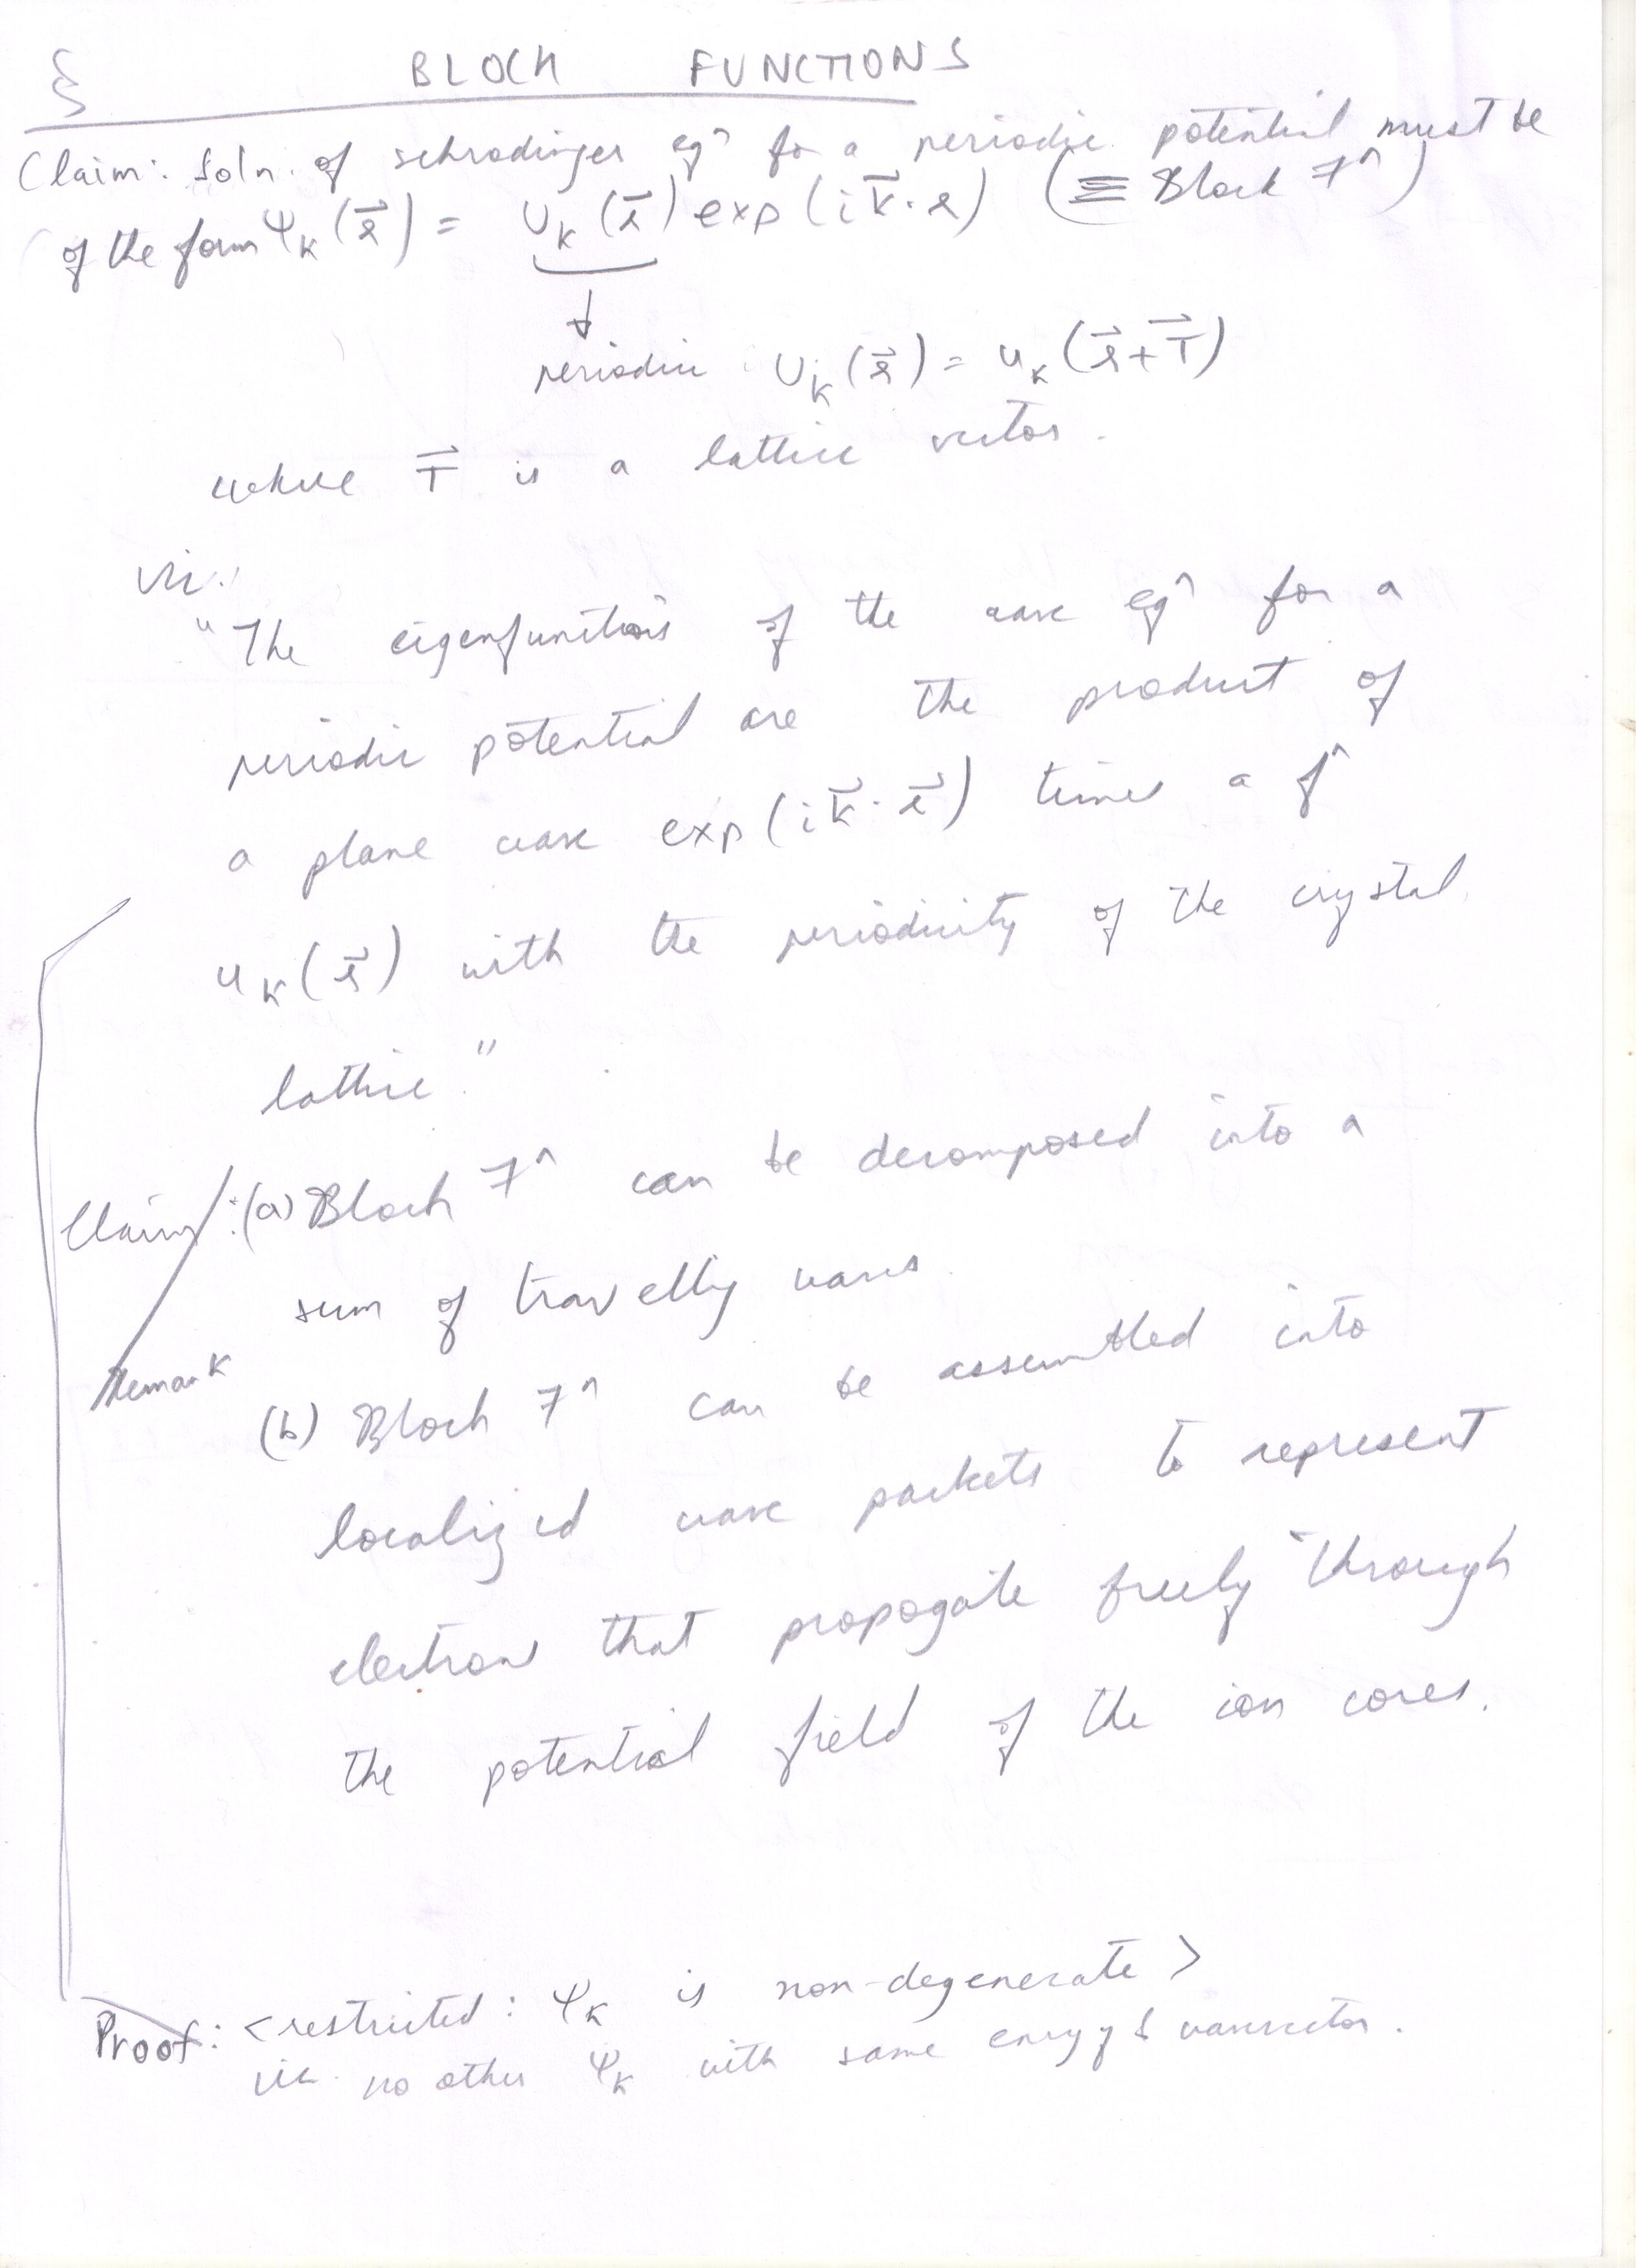 § BLOCH FUNCTIONS
Claim: Soln. of schrodinger eqⁿ for a periodic potential must be
of the form ψₖ(r⃗) = Uₖ(r⃗) exp(i k⃗·r) (≡ Bloch Fⁿ)
↓
periodic : Uₖ(r⃗) = uₖ(r⃗+T⃗)
where T⃗ is a lattice vector.
viz.
"The eigenfunctions of the wave eqⁿ for a
periodic potential are the product of
a plane wave exp(i k⃗·r⃗) times a fⁿ
uₖ(r⃗) with the periodicity of the crystal
lattice."
Claim/: (a) Bloch Fⁿ can be decomposed into a
sum of travelling waves
Remark
(b) Bloch Fⁿ can be assembled into
localized wave packets to represent
electrons that propogate freely through
the potential field of the ion cores.
Proof: <restricted: ψₖ is non-degenerate>
viz. no other ψₖ with same energy & wavevector.